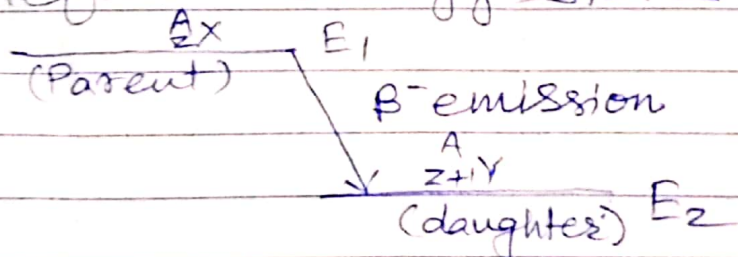 A
ZX E1
(Parent)
β-emission
A
Z+1Y
(daughter) E2